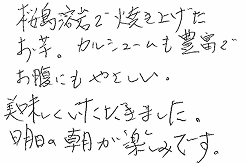 桜島溶岩で焼き上げた
お芋。カルシュームも豊富で
お腹にもやさしい。
美味しくいただきました。
明日の朝が楽しみです。